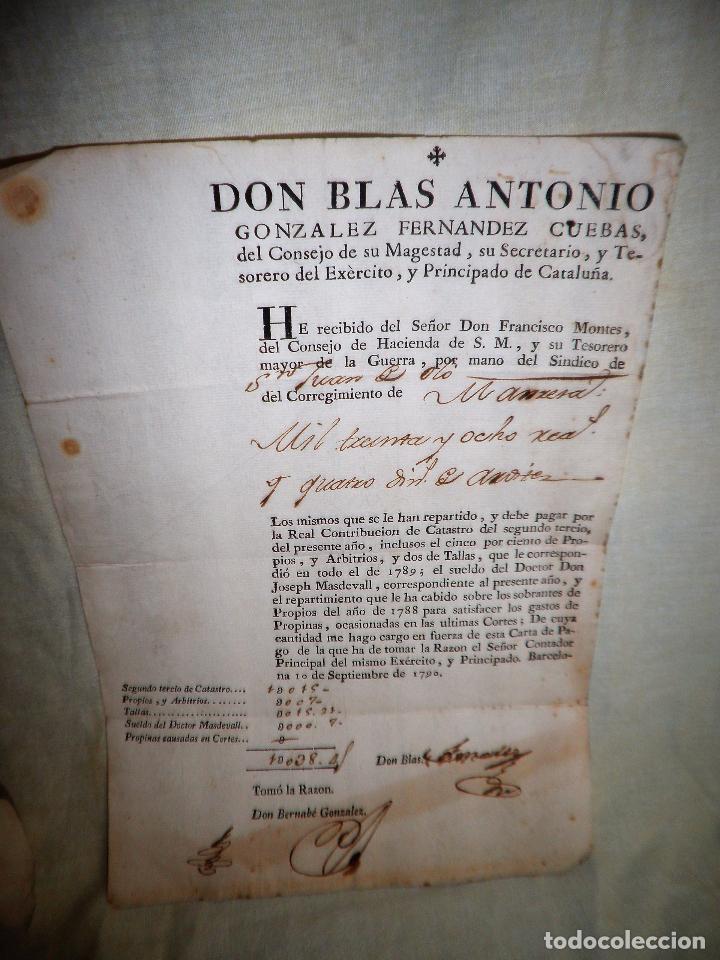 DON BLAS ANTONIO
GONZALEZ FERNANDEZ CUEBAS,
del Consejo de su Magestad, su Secretario, y Te-
sorero del Exèrcito, y Principado de Cataluña.
HE recibido del Señor Don Francisco Montes,
del Consejo de Hacienda de S. M., y su Tesorero
mayor de la Guerra, por mano del Sindico de
Juan
del Corregimiento de Manresa
Mil treinta y ocho rea.^s
y quatro din.^s
Los mismos que se le han repartido, y debe pagar por
la Real Contribucion de Catastro del segundo tercio,
del presente año, inclusos el cinco por ciento de Pro-
pios, y Arbitrios, y dos de Tallas, que le correspon-
dió en todo el de 1789; el sueldo del Doctor Don
Joseph Masdevall, correspondiente al presente año, y
el repartimiento que le ha cabido sobre los sobrantes de
Propios del año de 1788 para satisfacer los gastos de
Propinas, ocasionadas en las ultimas Cortes; De cuya
cantidad me hago cargo en fuerza de esta Carta de Pa-
go de la que ha de tomar la Razon el Señor Contador
Principal del mismo Exército, y Principado. Barcelo-
na 10 de Septiembre de 1790.
Segundo tercio de Catastro....
Propios, y Arbitrios........
Tallas......................
Sueldo del Doctor Masdevall..
Propinas causadas en Cortes..
Don Blas Gonzalez
Tomó la Razon.
Don Bernabé Gonzalez.
todocoleccion